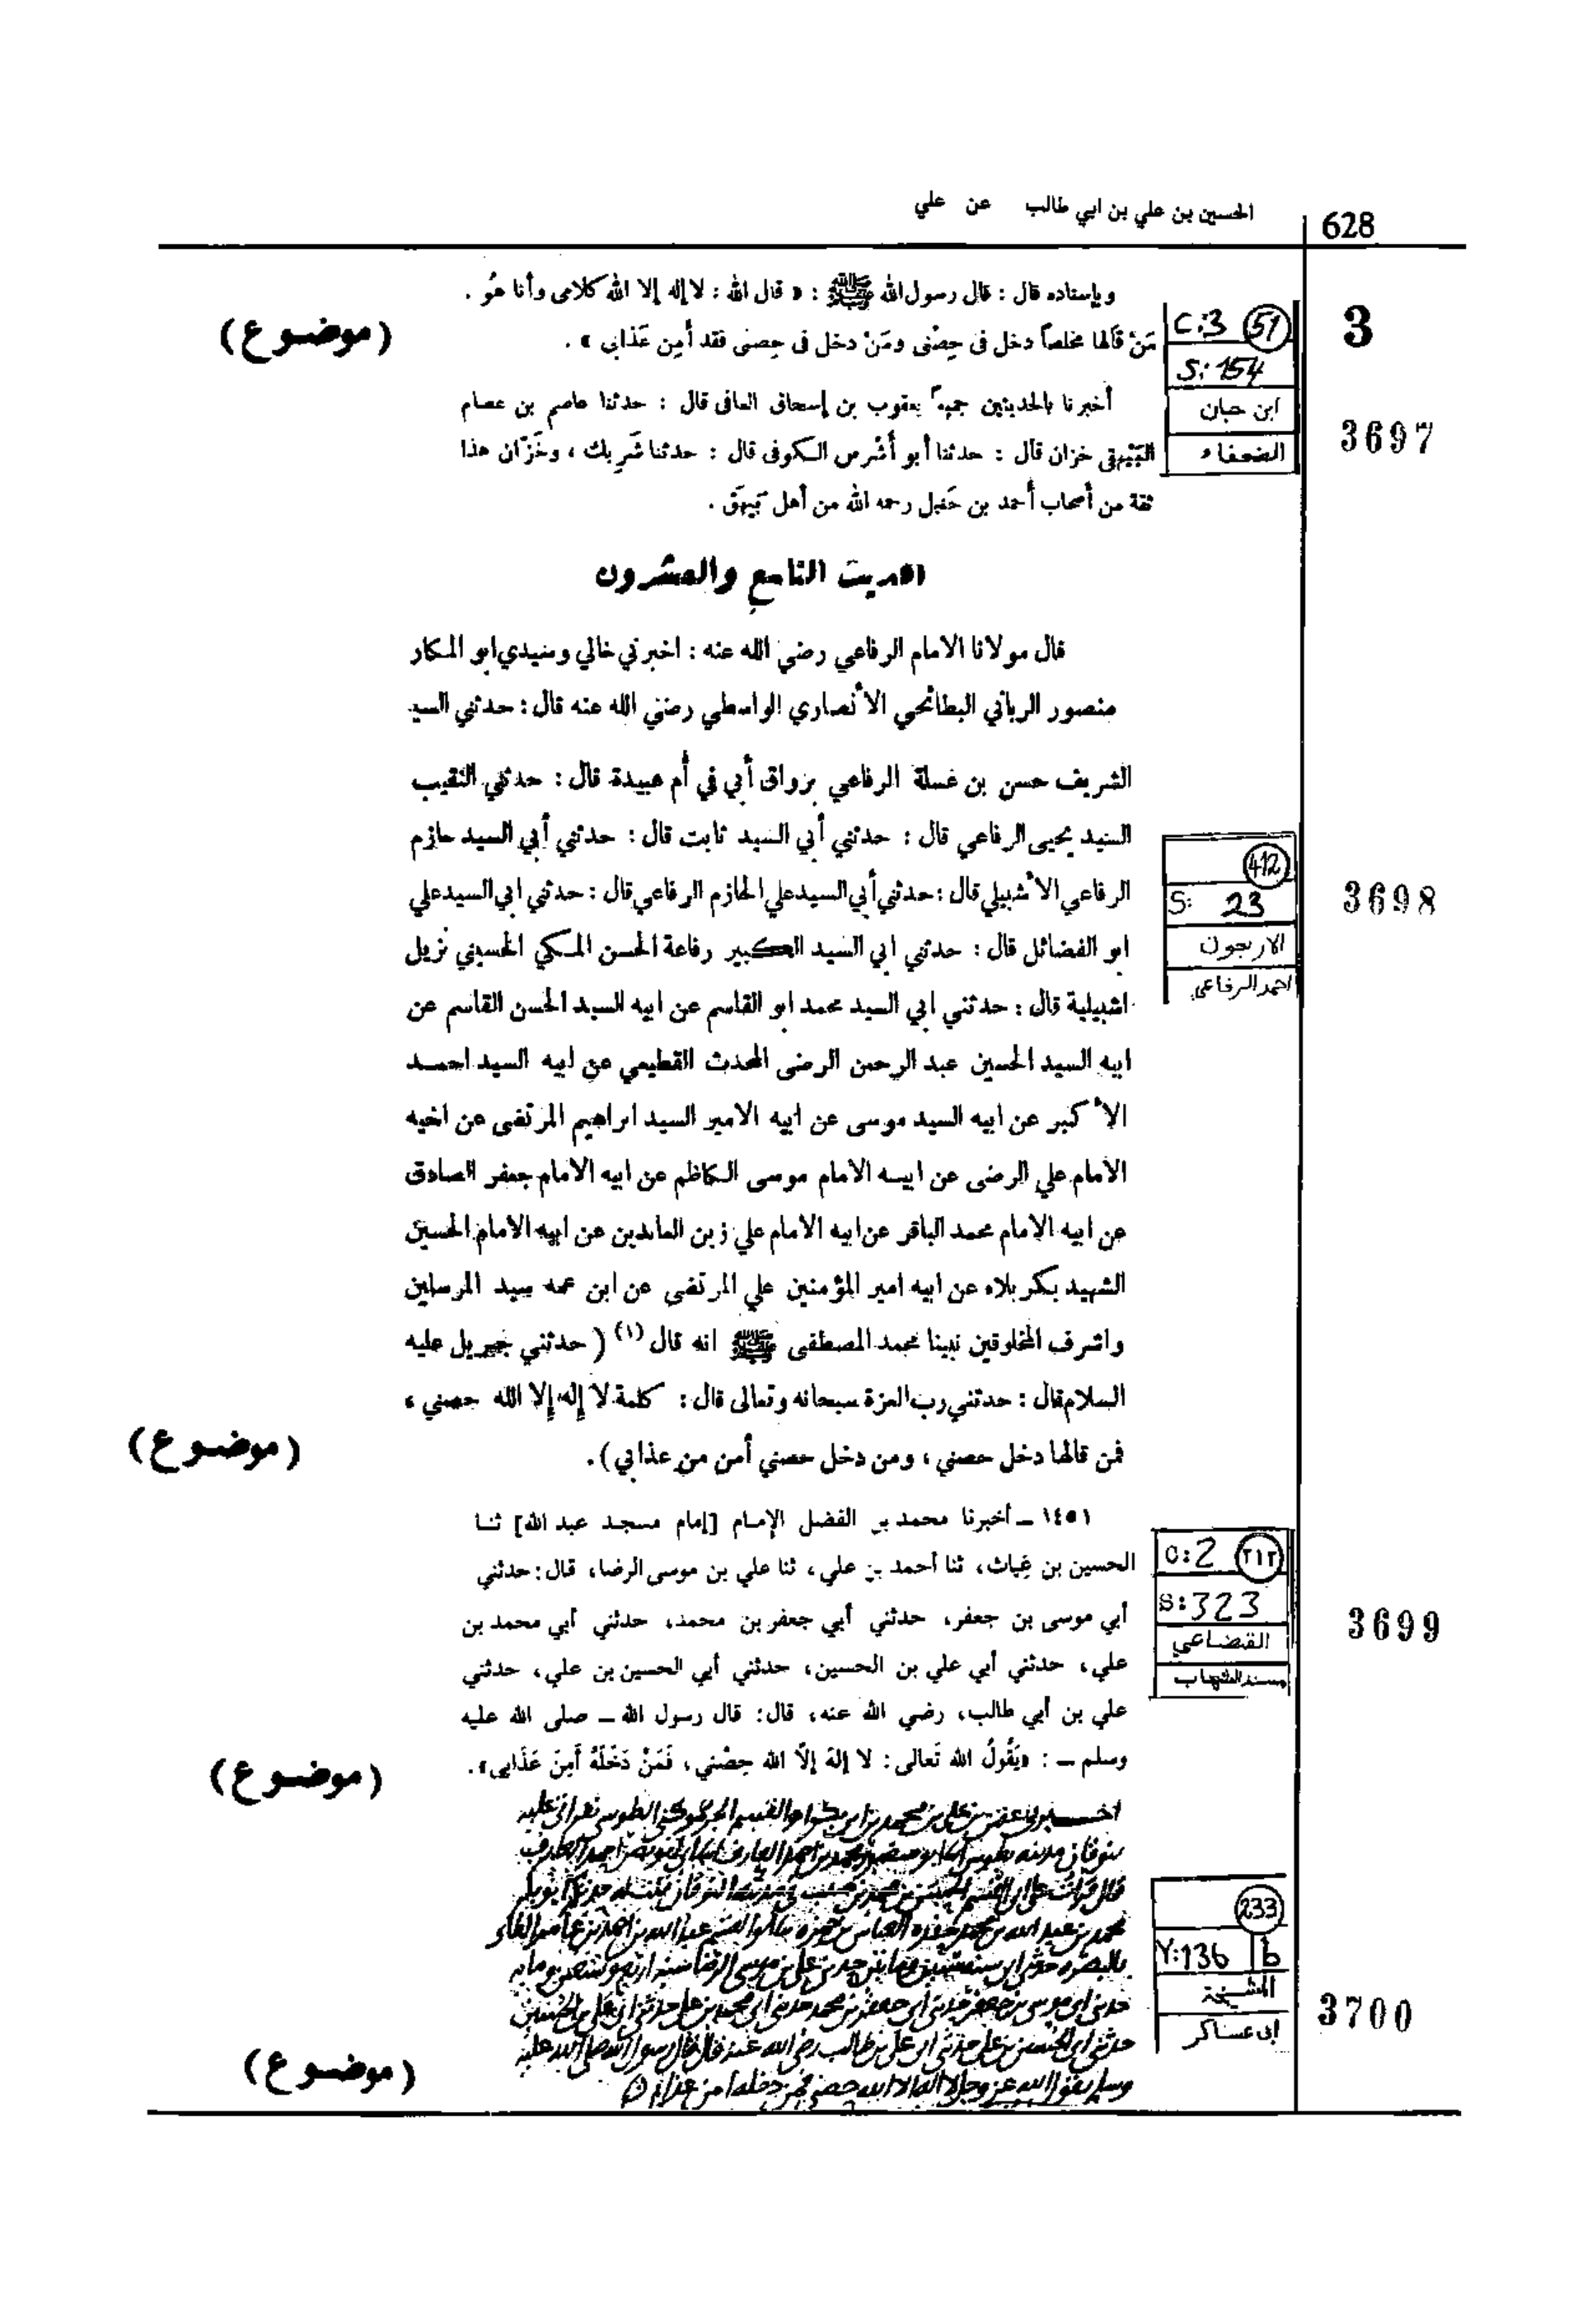 628
الحسين بن علي بن ابي طالب عن علي
3
وبإسناده قال : قال رسول الله ﷺ : « قال الله : لا إله إلا الله كلامى وأنا هُو .
مَنْ قالها مخلصاً دخل فى حِصْنى ومَنْ دخل فى حِصنى فقد أمِن عَذابى » .
(موضوع)
C:3 51
S:154
ابن حبان
الضعفاء
3697
أخبرنا بالحديثين جميعاً يعقوب بن إسحاق قال : حدثنا عاصم بن عصام
البَيْهقى خزان قال : حدثنا أبو أشْرس الكوفى قال : حدثنا شَرِيك ، وخَزّان هذا
ثقة من أصحاب أحمد بن حَنبل رحمه الله من أهل بَيهَق .
الحديث التاسع والعشرون
قال مولانا الامام الرفاعي رضي الله عنه : اخبرني خالي وسيدي ابو المكار
منصور الرباني البطائحي الأنصاري الواسطي رضي الله عنه قال : حدثني السيد
الشريف حسن بن عسلة الرفاعي برواق أبي في أم عبيدة قال : حدثني النقيب
السيد يحيى الرفاعي قال : حدثني أبي السيد ثابت قال : حدثني أبي السيد حازم
الرفاعي الأشبيلي قال : حدثني أبي السيد علي الحازم الرفاعي قال : حدثني ابي السيد علي
ابو الفضائل قال : حدثني ابي السيد الكبير رفاعة الحسن المكي الحسيني نزيل
اشبيلية قال : حدثني ابي السيد محمد ابو القاسم عن ابيه السيد الحسن القاسم عن
ابيه السيد الحسين عبد الرحمن الرضى المحدث القطيعي عن ابيه السيد احمد
الأكبر عن ابيه السيد موسى عن ابيه الامير السيد ابراهيم المرتضى عن اخيه
الامام علي الرضى عن ابيه الامام موسى الكاظم عن ابيه الامام جعفر الصادق
عن ابيه الامام محمد الباقر عن ابيه الامام علي زين العابدين عن ابيه الامام الحسين
الشهيد بكربلاء عن ابيه امير المؤمنين علي المرتضى عن ابن عمه سيد المرسلين
واشرف المخلوقين نبينا محمد المصطفى ﷺ انه قال (١) ( حدثني جبريل عليه
السلام قال : حدثني رب العزة سبحانه وتعالى قال : كلمة لا إله إلا الله حصني ،
فمن قالها دخل حصني ، ومن دخل حصني أمن من عذابي ) .
(موضوع)
412
S: 23
الاربعون
احمد الرفاعي
3698
١٤٥١ ــ أخبرنا محمد بن الفضل الإمام [إمام مسجد عبد الله] ثنا
الحسين بن غياث، ثنا أحمد بن علي، ثنا علي بن موسى الرضا، قال: حدثني
أبي موسى بن جعفر، حدثني أبي جعفر بن محمد، حدثني أبي محمد بن
علي، حدثني أبي علي بن الحسين، حدثني أبي الحسين بن علي، حدثني
علي بن أبي طالب، رضي الله عنه، قال: قال رسول الله ــ صلى الله عليه
وسلم ــ : «يَقُولُ الله تَعالى: لا إلهَ إلاّ الله حِصْني، فَمَنْ دَخَلَهُ أَمِنَ عَذَابي».
(موضوع)
C:2 ٢١٢
S:323
القضاعي
مسند الشهاب
3699
بالبصره حدثني ابي حدثني علي بن موسى الرضا سنه اربع وتسعين ومايه
حدثني ابي موسى بن جعفر حدثني ابي جعفر بن محمد حدثني ابي محمد بن علي حدثني ابي علي بن الحسين
حدثني ابي الحسين بن علي حدثني ابي علي بن ابي طالب رضي الله عنه قال قال رسول الله صلى الله عليه
وسلم يقول الله عز وجل لا اله الا الله حصني فمن دخله امن عذابي
(موضوع)
233
Y:136 b
المشيخة
ابن عساكر
3700